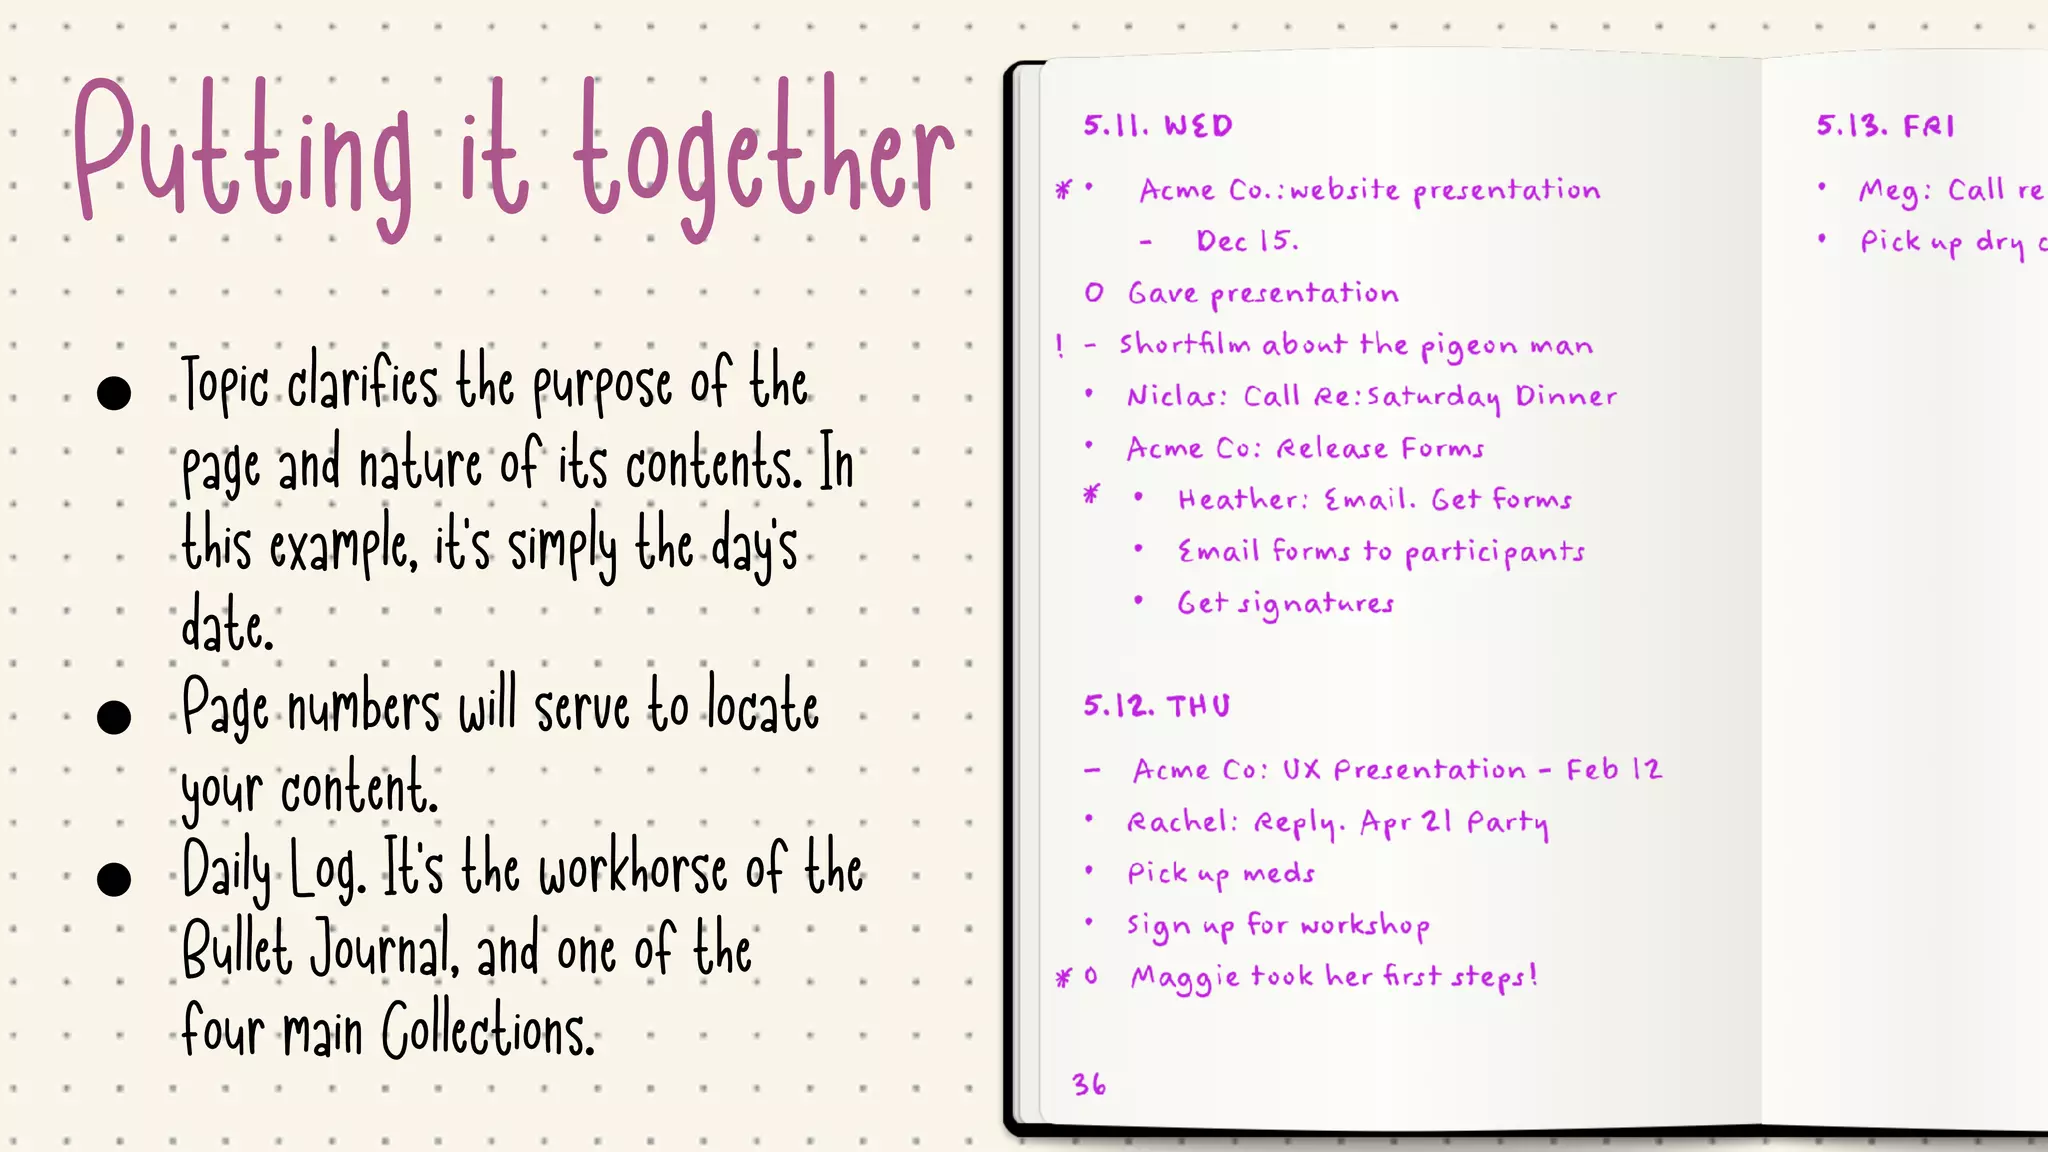 Putting it together
● Topic clarifies the purpose of the
page and nature of its contents. In
this example, it's simply the day's
date.
● Page numbers will serve to locate
your content.
● Daily Log. It's the workhorse of the
Bullet Journal, and one of the
four main Collections.
5.11. WED
* • Acme Co.: website presentation
– Dec 15.
O Gave presentation
! – Shortfilm about the pigeon man
• Niclas: Call Re: Saturday Dinner
• Acme Co: Release Forms
* • Heather: Email. Get forms
• Email forms to participants
• Get signatures
5.12. THU
– Acme Co: UX Presentation – Feb 12
• Rachel: Reply. Apr 21 Party
• Pick up meds
• Sign up for workshop
* O Maggie took her first steps!
36
5.13. FRI
• Meg: Call re
• Pick up dry